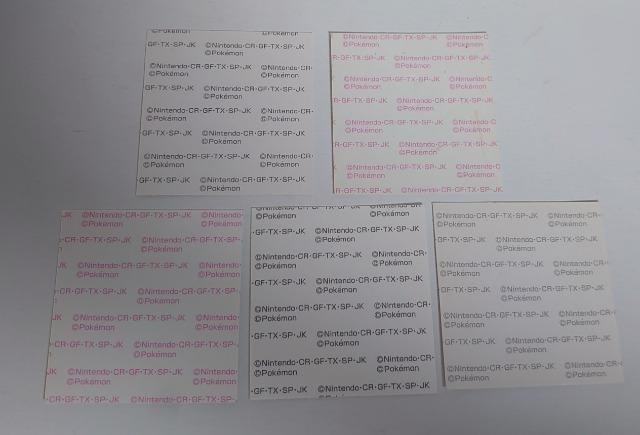 ©Pokémon
GF·TX·SP·JK ©Nintendo·CR·GF·TX·SP·JK
©Pokémon
©Nintendo·CR·GF·TX·SP·JK ©Nintendo·CR·
©Pokémon ©Pokémon
GF·TX·SP·JK ©Nintendo·CR·GF·TX·SP·JK
©Pokémon
©Nintendo·CR·GF·TX·SP·JK ©Nintendo·CR·
©Pokémon ©Pokémon
·GF·TX·SP·JK ©Nintendo·CR·GF·TX·SP·JK
©Pokémon
©Nintendo·CR·GF·TX·SP·JK ©Nintendo·CR·
©Pokémon ©Pokémon
·GF·TX·SP·JK ©Nintendo·CR·GF·TX·SP·JK
©Pokémon
©Nintendo·CR·GF·TX·SP·JK ©Nintendo·C
©Pokémon ©Pokémon
R·GF·TX·SP·JK ©Nintendo·CR·GF·TX·SP·JK
©Pokémon
©Nintendo·CR·GF·TX·SP·JK ©Nintendo·C
©Pokémon ©Pokémon
R·GF·TX·SP·JK ©Nintendo·CR·GF·TX·SP·JK
©Pokémon
©Nintendo·CR·GF·TX·SP·JK ©Nintendo·C
©Pokémon ©Pokémon
R·GF·TX·SP·JK ©Nintendo·CR·GF·TX·SP·JK
©Pokémon
©Nintendo·CR·GF·TX·SP·JK ©Nintendo·C
©Pokémon ©Pokémon
R·GF·TX·SP·JK ©Nintendo·CR·GF·TX·SP·JK
JK ©Nintendo·CR·GF·TX·SP·JK ©Nintendo·
©Pokémon ©Pokémon
·CR·GF·TX·SP·JK ©Nintendo·CR·GF·TX·SP·JK
©Pokémon
JK ©Nintendo·CR·GF·TX·SP·JK ©Nintendo·
©Pokémon ©Pokémon
·CR·GF·TX·SP·JK ©Nintendo·CR·GF·TX·SP·JK
©Pokémon
JK ©Nintendo·CR·GF·TX·SP·JK ©Nintendo·
©Pokémon ©Pokémon
·CR·GF·TX·SP·JK ©Nintendo·CR·GF·TX·SP·JK
©Pokémon
JK ©Nintendo·CR·GF·TX·SP·JK ©Nintendo·
©Pokémon ©Pokémon
·CR·GF·TX·SP·JK ©Nintendo·CR·GF·TX·SP·JK
©Pokémon ©Pokémon
·GF·TX·SP·JK ©Nintendo·CR·GF·TX·SP·JK
©Pokémon
©Nintendo·CR·GF·TX·SP·JK ©Nintendo·CR·
©Pokémon ©Pokémon
·GF·TX·SP·JK ©Nintendo·CR·GF·TX·SP·JK
©Pokémon
©Nintendo·CR·GF·TX·SP·JK ©Nintendo·CR·
©Pokémon ©Pokémon
·GF·TX·SP·JK ©Nintendo·CR·GF·TX·SP·JK
©Pokémon
©Nintendo·CR·GF·TX·SP·JK ©Nintendo·CR·
©Pokémon ©Pokémon
·GF·TX·SP·JK ©Nintendo·CR·GF·TX·SP·JK
©Pokémon
©Nintendo·CR·GF·TX·SP·JK ©Nintendo·CR·
©Pokémon ©Pokémon
GF·TX·SP·JK ©Nintendo·CR·GF·TX·SP·JK
©Pokémon
©Nintendo·CR·GF·TX·SP·JK ©Nintendo·CR·
©Pokémon ©Pokémon
GF·TX·SP·JK ©Nintendo·CR·GF·TX·SP·JK
©Pokémon
©Nintendo·CR·GF·TX·SP·JK ©Nintendo·CR·
©Pokémon ©Pokémon
·GF·TX·SP·JK ©Nintendo·CR·GF·TX·SP·JK
©Pokémon
©Nintendo·CR·GF·TX·SP·JK ©Nintendo·CR·
©Pokémon ©Pokémon